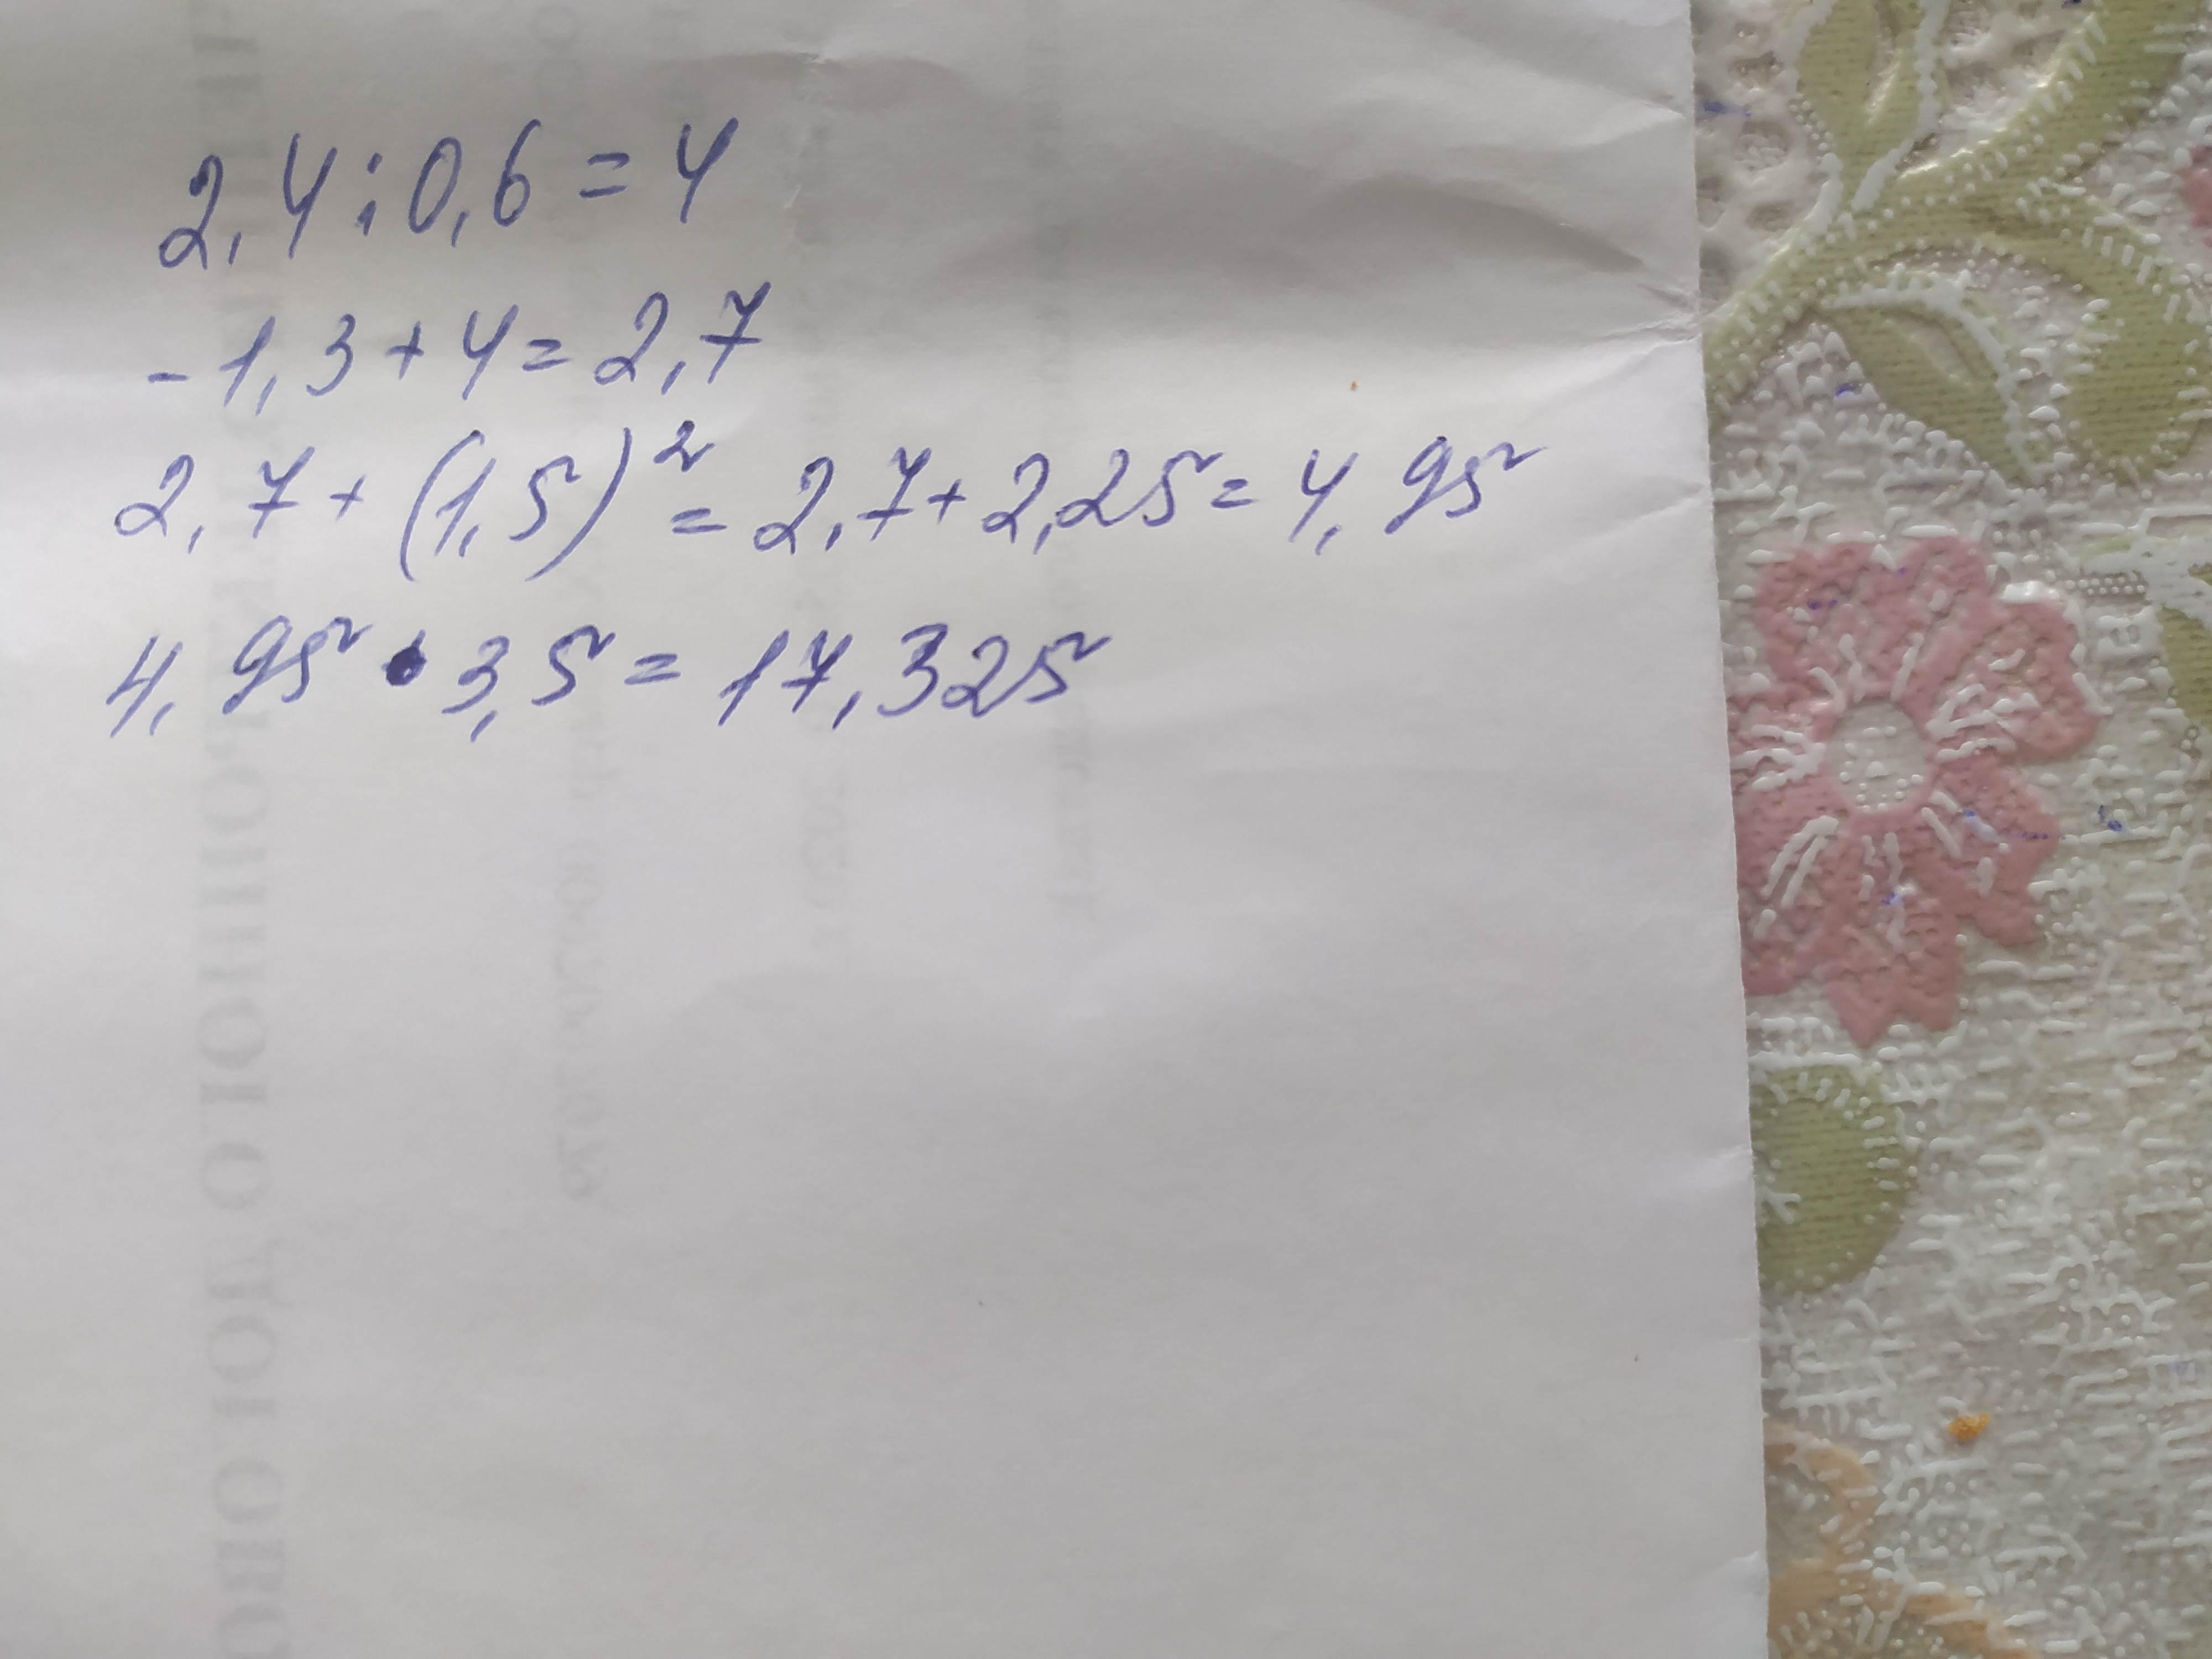 2,4:0,6=4
-1,3+4=2,7
2,7+(1,5)²=2,7+2,25=4,95
4,95•3,5=17,325